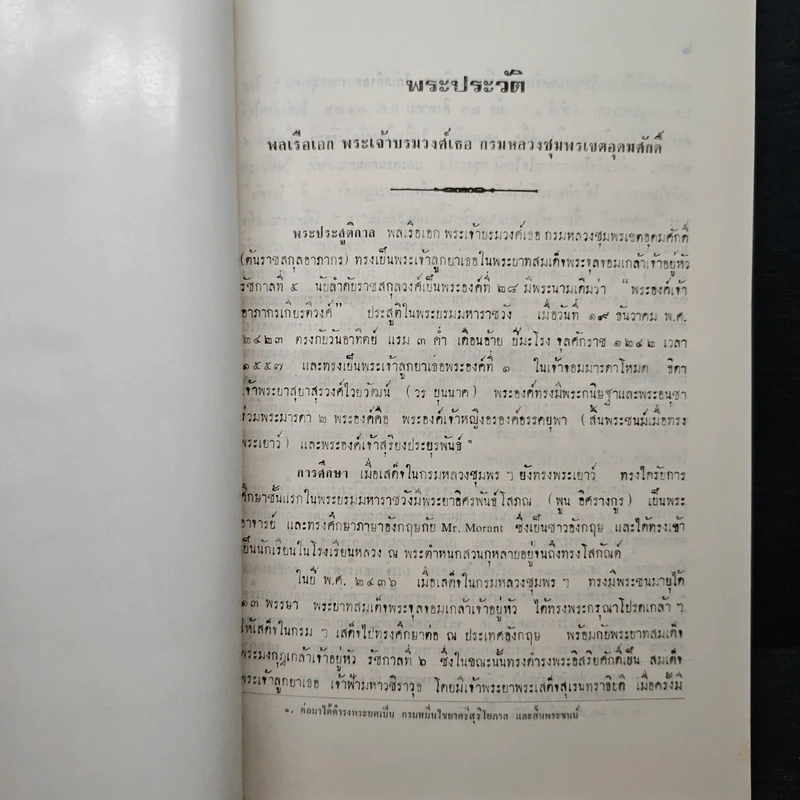 พระประวัติ
พลเรือเอก พระเจ้าบรมวงศ์เธอ กรมหลวงชุมพรเขตอุดมศักดิ์
พระประสูติกาล พลเรือเอก พระเจ้าบรมวงศ์เธอ กรมหลวงชุมพรเขตอุดมศักดิ์
(ต้นราชสกุลอาภากร) ทรงเป็นพระเจ้าลูกยาเธอในพระบาทสมเด็จพระจุลจอมเกล้าเจ้าอยู่หัว
รัชกาลที่ ๕ นับลำดับราชสกุลวงศ์เป็นพระองค์ที่ ๒๘ มีพระนามเดิมว่า "พระองค์เจ้า
อาภากรเกียรติวงศ์" ประสูติในพระบรมมหาราชวัง เมื่อวันที่ ๑๙ ธันวาคม พ.ศ.
๒๔๒๓ ตรงกับวันอาทิตย์ แรม ๓ ค่ำ เดือนอ้าย ปีมะโรง จุลศักราช ๑๒๔๒ เวลา
๑๕๕๗ และทรงเป็นพระเจ้าลูกยาเธอพระองค์ที่ ๑ ในเจ้าจอมมารดาโหมด ธิดา
เจ้าพระยาสุรวงศ์ไวยวัฒน์ (วร บุนนาค) พระองค์ทรงมีพระกนิษฐาและพระอนุชา
ร่วมพระมารดา ๒ พระองค์คือ พระองค์เจ้าหญิงอรองค์อรรคยุพา (สิ้นพระชนม์เมื่อทรง
พระเยาว์) และพระองค์เจ้าสุริยงประยุรพันธุ์ ๑
การศึกษา เมื่อเสด็จในกรมหลวงชุมพร ๆ ยังทรงพระเยาว์ ทรงได้รับการ
ศึกษาชั้นแรกในพระบรมมหาราชวังมีพระยาอิศรพันธุ์โสภณ (พูน อิศรางกูร) เป็นพระ
อาจารย์ และทรงศึกษาภาษาอังกฤษกับ Mr. Morant ซึ่งเป็นชาวอังกฤษ และได้ทรงเข้า
เป็นนักเรียนในโรงเรียนหลวง ณ พระตำหนักสวนกุหลาบอยู่จนถึงทรงโสกันต์
ในปี พ.ศ. ๒๔๓๖ เมื่อเสด็จในกรมหลวงชุมพร ๆ ทรงมีพระชนมายุได้
๑๓ พรรษา พระบาทสมเด็จพระจุลจอมเกล้าเจ้าอยู่หัว ได้ทรงพระกรุณาโปรดเกล้า ๆ
ให้เสด็จในกรม ๆ เสด็จไปทรงศึกษาต่อ ณ ประเทศอังกฤษ พร้อมกับพระบาทสมเด็จ
พระมงกุฎเกล้าเจ้าอยู่หัว รัชกาลที่ ๖ ซึ่งในขณะนั้นทรงดำรงพระอิสริยศักดิ์เป็น สมเด็จ
พระเจ้าลูกยาเธอ เจ้าฟ้ามหาวชิราวุธ โดยมีเจ้าพระยาพระเสด็จสุเรนทราธิบดี เมื่อครั้งมี
๑. ต่อมาได้ดำรงพระยศเป็น กรมหมื่นไชยาศรีสุริโยภาส และสิ้นพระชนม์